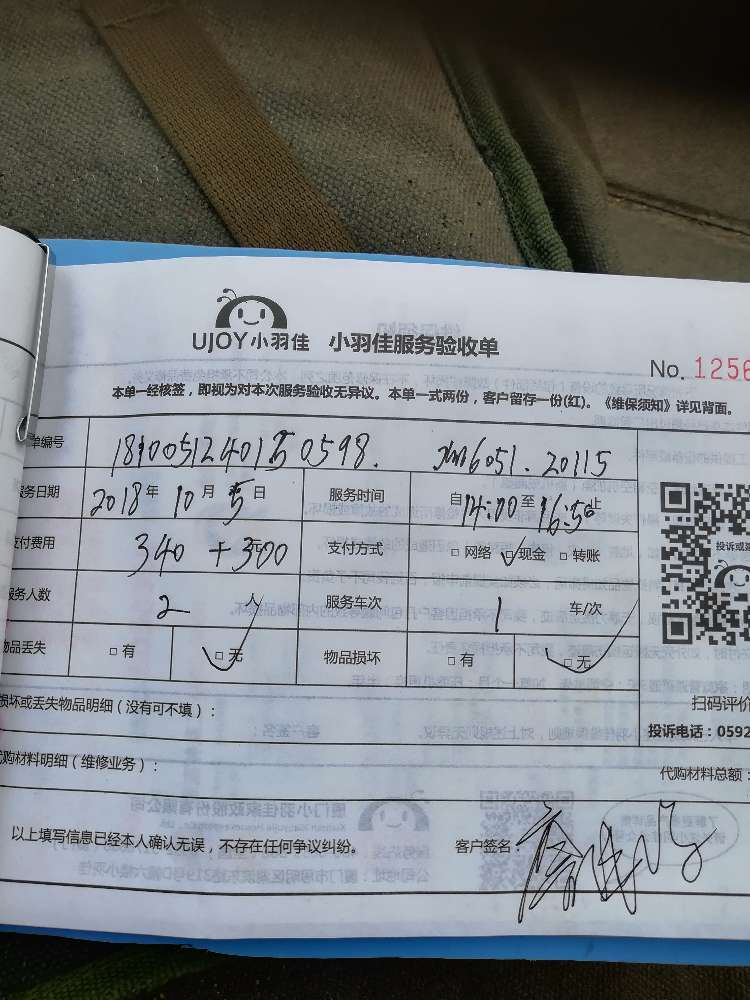 UJOY小羽佳 小羽佳服务验收单
No. 1256
本单一经核签，即视为对本次服务验收无异议。本单一式两份，客户留存一份(红)。《维保须知》详见背面。
单编号 1810051240150598.
务日期 2018年10月5日 服务时间 自14:00至16:50止
支付费用 340+300元 支付方式 □网络 ✓现金 □转账
服务人数 2人 服务车次 1 车/次
物品丢失 □有 □无 物品损坏 □有 □无
损坏或丢失物品明细（没有可不填）：
扫码评价
投诉或
投诉电话：0592
代购材料明细（维修业务）：
代购材料总额：
以上填写信息已经本人确认无误，不存在任何争议纠纷。 客户签名：